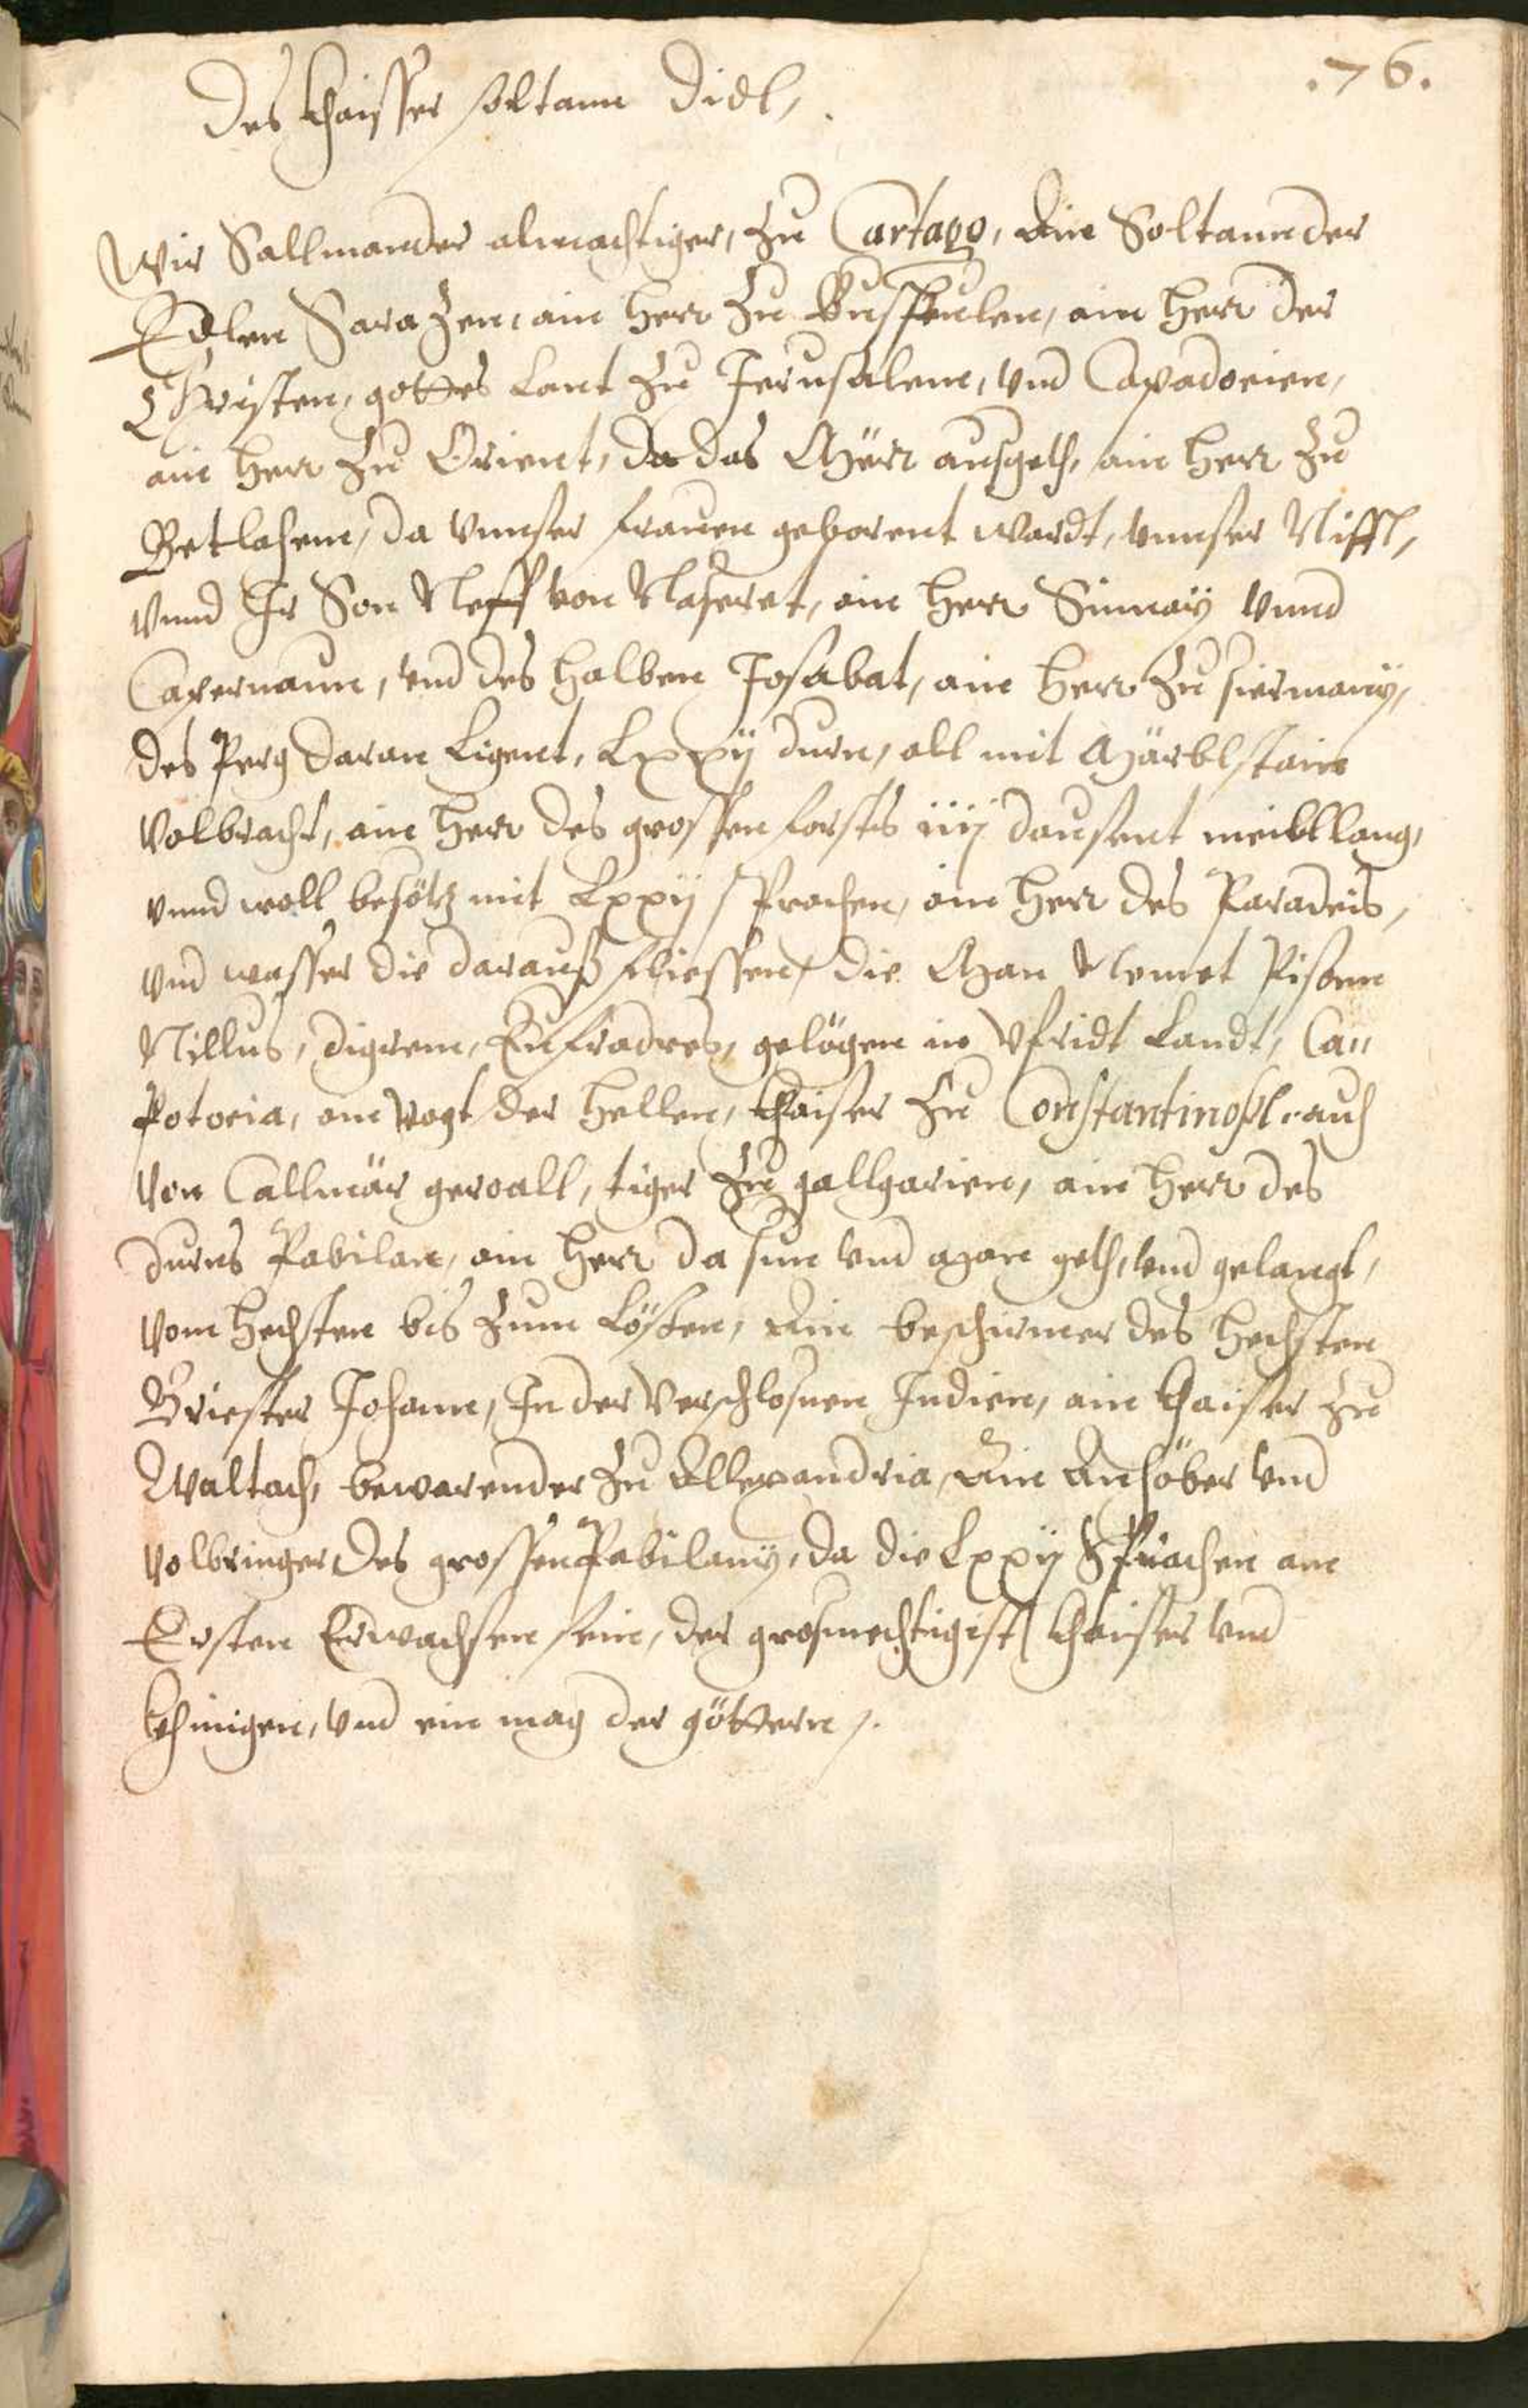 .76.
Des Khaisser soltann Didl,
Wir Sallmander almachtiger, Zu Cartago, Ain Soltann der
Edlen Sarazen, ain Herr Zu , ain Herr der
Christen, gottes Lant Zu Jerusalem, vnd Capadocien,
ain Herr Zu Orient, da das Mörr ausgeth, ain Herr Zu
Betlahem, da vnnser frauen geborent wardt, vnnser Niffl,
vnnd Ir Son Neff von Naseret, ain Herr Sinnay vnnd
Capernaum, vnd des halben Josabat, ain Herr Zu siermany,
des Perg daran Ligent, Lxxij durn, all mit Märblstain
volbracht, ain Herr des grossen forsts iiij dausent meill lang,
vnnd woll besötz mit Lxxij sprachen, ain Herr des Paradeis,
vnd wasser die darauß fliessen, die Man Nemet Pison
Nillus, digrem, Eufradres, gelögen in Vfridt Landt, Ca"
potocia, ain Vogt der Hellen, Khaiser Zu Constantinopl. auch
von Callmär gewalt, tiger Zu gallgarien, ain Herr des
durns Pabilan, ain Herr da sun vnd Man geth, vnd gelangt,
vom Hechsten bis Zum Lösten, Ain beschirmer des Hechsten
Briester Johann, In der Verschlosnen Indien, ain Khaiser Zu
Waltach, bewarender Zu Allexandria, Ain Anhöber vnd
volbringer des grossen Pabilany, da die Lxxij Sprachen am
Ersten Erwachsen sein, der grosmechtigist Khaiser vnd
Khinigen, vnd ein mag der göttern.